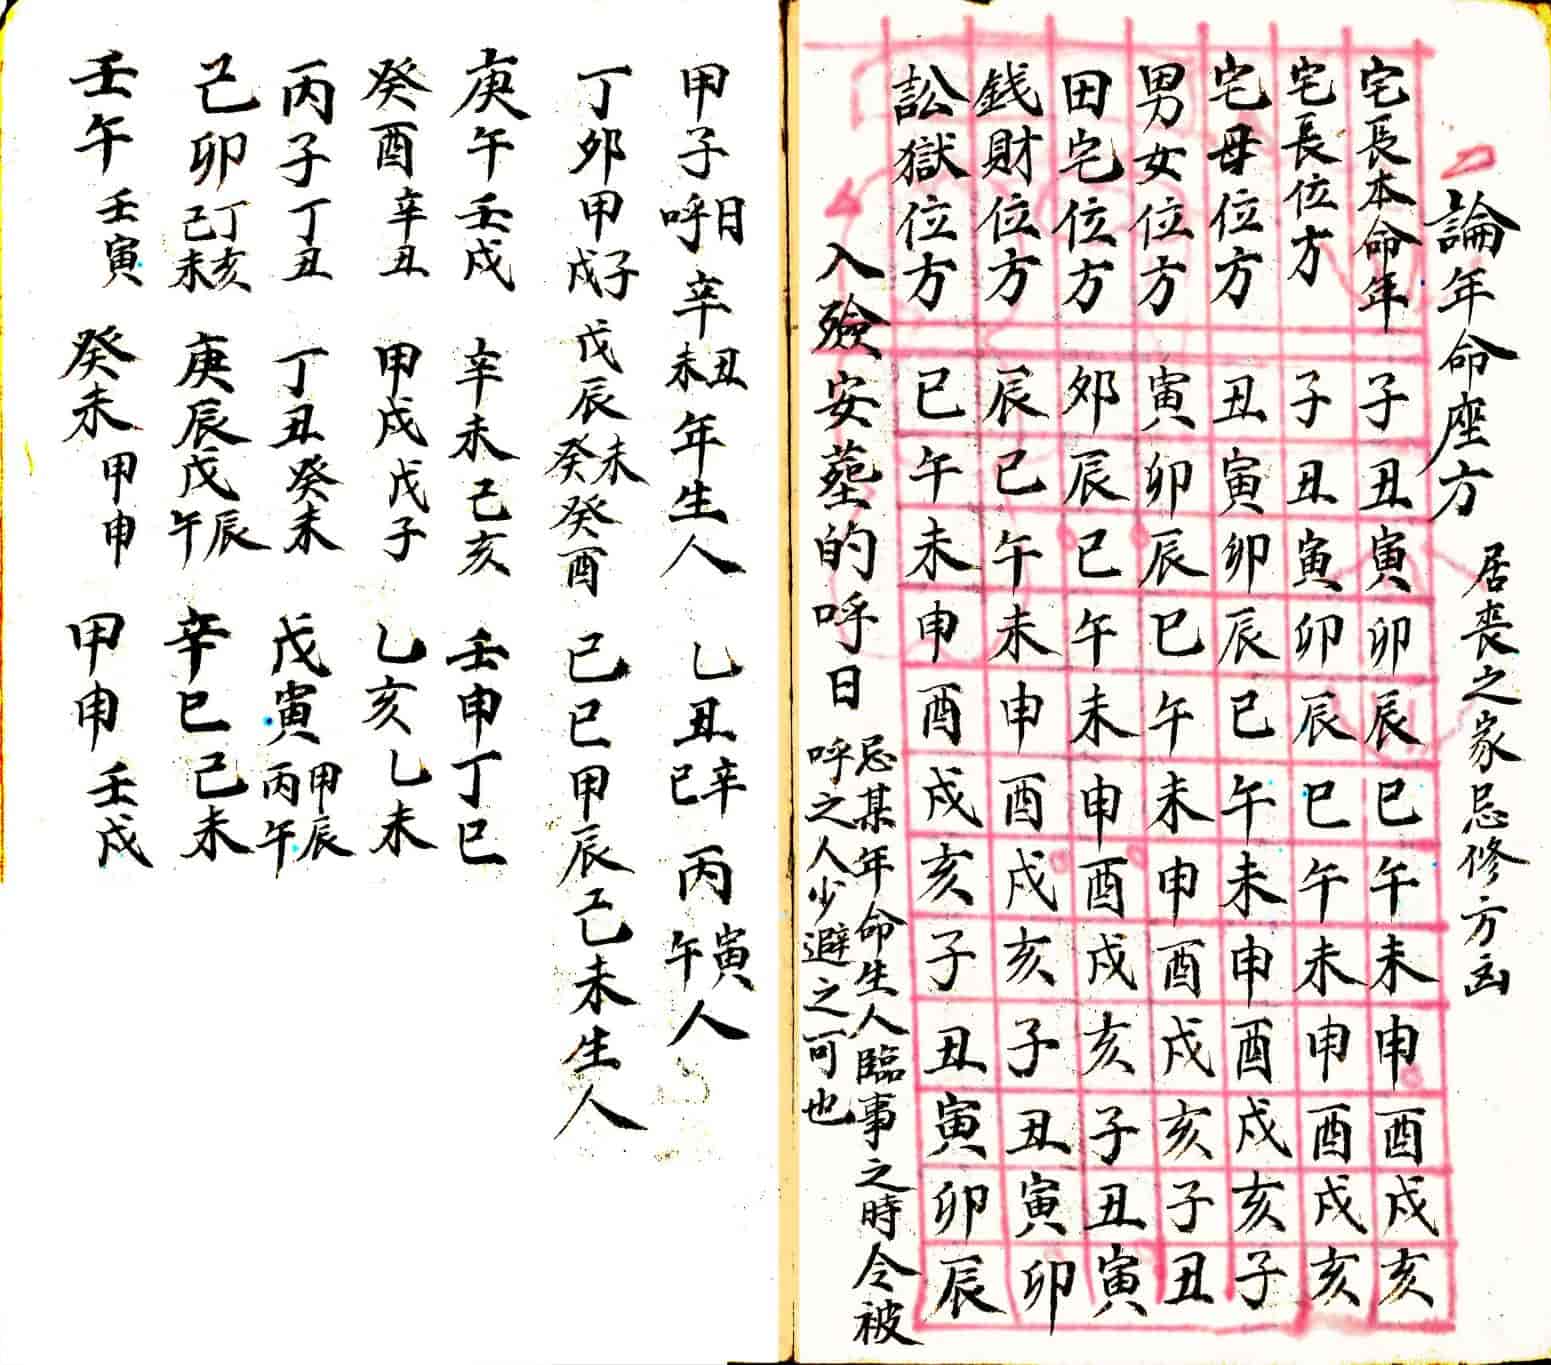 論年命座方 居喪之家忌修方凶
宅長本命年 子 丑 寅 卯 辰 巳 午 未 申 酉 戌 亥
宅長位方 子 丑 寅 卯 辰 巳 午 未 申 酉 戌 亥
宅母位方 丑 寅 卯 辰 巳 午 未 申 酉 戌 亥 子
男女位方 寅 卯 辰 巳 午 未 申 酉 戌 亥 子 丑
田宅位方 卯 辰 巳 午 未 申 酉 戌 亥 子 丑 寅
錢財位方 辰 巳 午 未 申 酉 戌 亥 子 丑 寅 卯
訟獄位方 巳 午 未 申 酉 戌 亥 子 丑 寅 卯 辰
入殮安葬的呼日
忌某年命生人臨事之時令被
呼之人少避之可也
甲子日呼辛丑未年生人 乙丑辛巳 丙寅午人
丁卯甲子戌 戊辰癸未癸酉 己巳甲辰己未生人
庚午壬戌 辛未己亥 壬申丁巳
癸酉辛丑 甲戌戊子 乙亥乙未
丙子丁丑 丁丑癸未 戊寅甲辰丙午
己卯丁亥己未 庚辰戊辰午 辛巳己未
壬午壬寅 癸未甲申 甲申壬戌